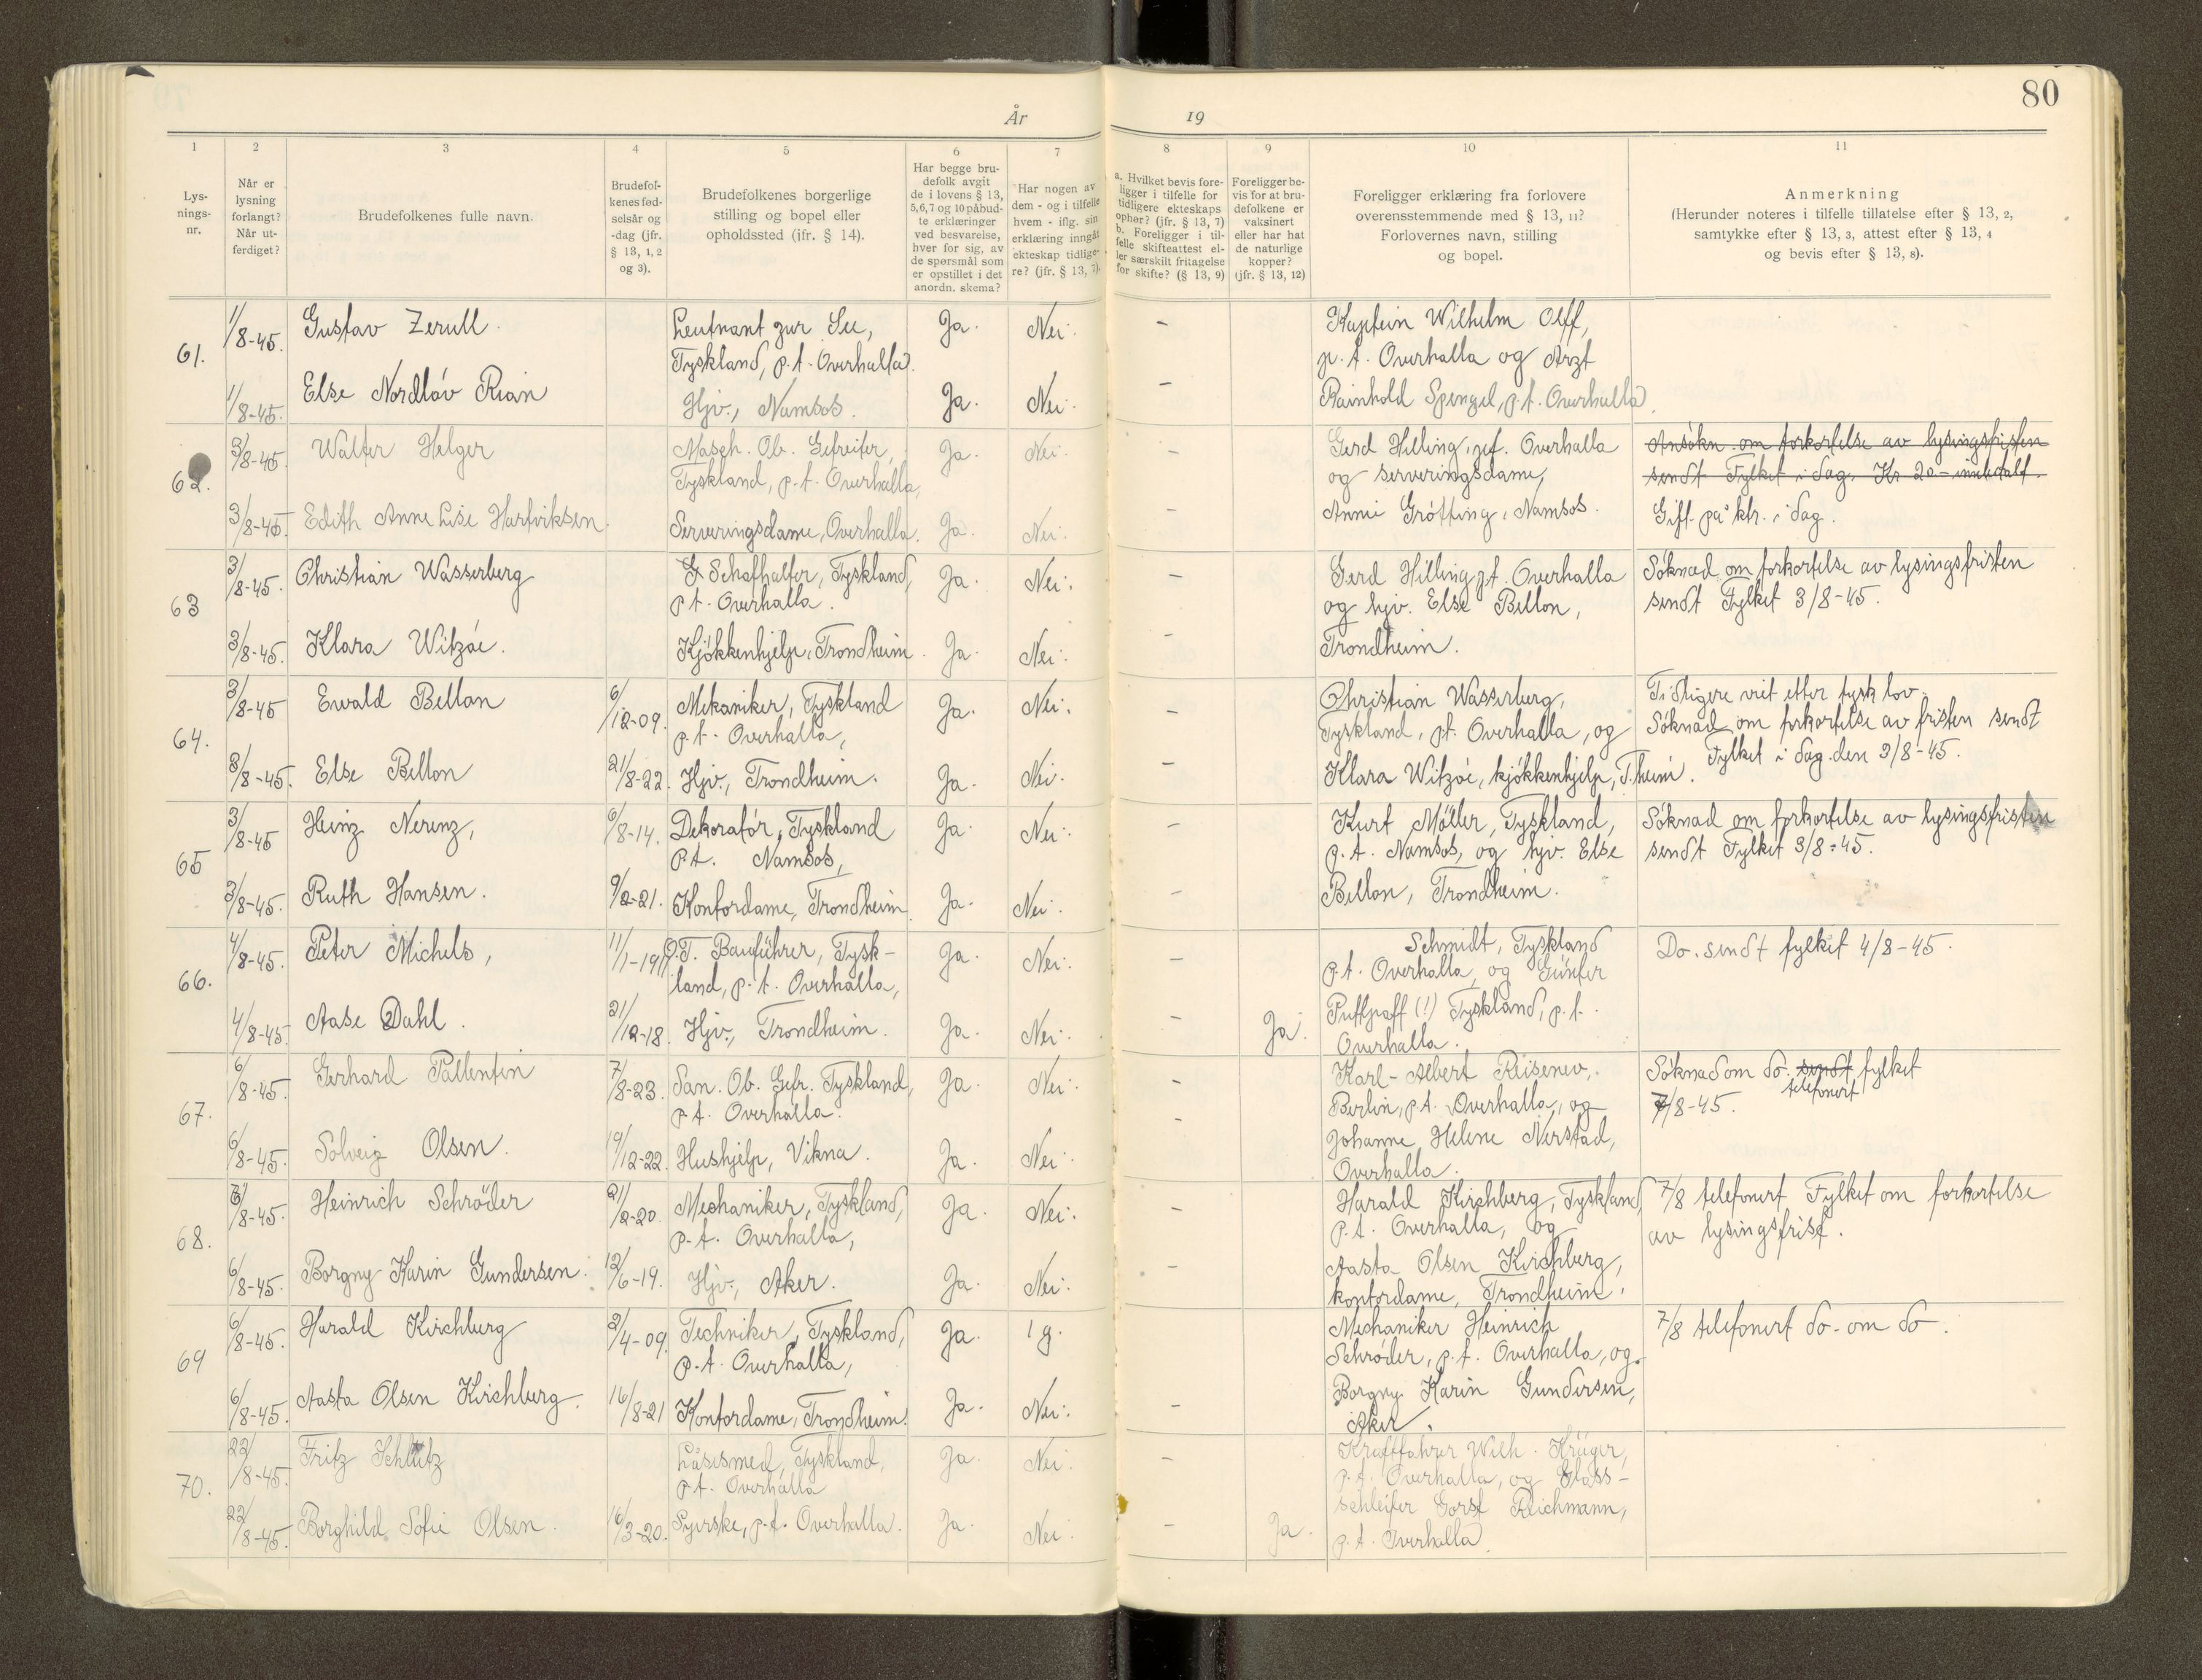 80
År 19
1 2 3 4 5 6 7 8 9 10 11
Lys-
nings-
nr.
Når er
lysning
forlangt?
Når ut-
ferdiget?
Brudefolkenes fulle navn.
Brudefol-
kenes fød-
selsår og
-dag (jfr.
§ 13, 1, 2
og 3).
Brudefolkenes borgerlige
stilling og bopel eller
opholdssted (jfr. § 14).
Har begge bru-
defolk avgit
de i lovens § 13,
5, 6, 7 og 10 påbud-
te erklæringer
ved besvarelse,
hver for sig, av
de spørsmål som
er opstillet i det
anordn. skema?
Har nogen av
dem - og i tilfelle
hvem - iflg. sin
erklæring inngåt
ekteskap tidlige-
re? (jfr. § 13, 7).
a. Hvilket bevis fore-
ligger i tilfelle for
tidligere ekteskaps
ophør? (jfr. § 13, 7)
b. Foreligger i til-
felle skifteattest el-
ler særskilt fritagelse
for skifte? (§ 13, 9)
Foreligger be-
vis for at bru-
defolkene er
vaksinert
eller har hat
de naturlige
kopper?
(jfr. § 13, 12)
Foreligger erklæring fra forlovere
overensstemmende med § 13, 11?
Forlovernes navn, stilling
og bopel.
Anmerkning
(Herunder noteres i tilfelle tillatelse efter § 13, 2,
samtykke efter § 13, 3, attest efter § 13, 4
og bevis efter § 13, 8).
61.
1/8-45. Gustav Zerull. Leutnant zur See, Ja. Nei. -
Tyskland, p.t. Overhalla.
1/8-45. Else Nordlöv Rian Hjv., Namsos. Ja. Nei. -
Kaptein Wilhelm Olff,
p.t. Overhalla og Arzt
Rainhold Spengel, p.t. Overhalla.
62.
3/8-45. Walter Helger Masch. Ob. Gefreiter, Ja. Nei. -
Tyskland, p.t. Overhalla,
3/8-45. Edith Anne Lise Hartviksen. Serveringsdame, Overhalla. Ja. Nei. -
Gerd Hilling, pt. Overhalla
og serveringsdame,
Anni Grötting, Namsos.
Ansökn. om forkortelse av lysingsfristen
sendt Fylket i dag. Kr 20.- innbetalt.
Gift på ktr. i dag.
63
3/8-45. Christian Wasserberg Schafhalter, Tyskland, Ja. Nei. -
p t. Overhalla.
3/8-45. Klara Witzöe. Kjökkenhjelp, Trondheim. Ja. Nei. -
Gerd Hilling pt. Overhalla
og hjv. Else Bellon,
Trondheim.
Söknad om forkortelse av lysingsfristen
sendt Fylket 3/8-45.
64.
3/8-45 Ewald Bellon 6/12-09. Mekaniker, Tyskland Ja. Nei. -
p.t. Overhalla,
3/8-45. Else Bellon 21/8-22. Hjv., Trondheim. Ja. Nei. -
Christian Wasserberg,
Tyskland, pt. Overhalla, og
Klara Witzöe, kjökkenhjelp, T.heim.
Tidligere viet etter tysk lov.
Söknad om forkortelse av fristen sendt
Fylket i dag den 3/8-45.
65
3/8-45 Heinz Nerenz, 6/8-14. Dekoratör, Tyskland Ja. Nei. -
p.t. Namsos,
3/8-45. Ruth Hansen. 9/2-21. Kontordame, Trondheim. Ja. Nei. -
Kurt Möller, Tyskland,
p.t. Namsos, og hjv. Else
Bellon, Trondheim.
Söknad om forkortelse av lysingsfristen
sendt Fylket 3/8-45.
66.
4/8-45. Peter Michels, 11/1-1911 O.T. Bauführer, Tysk- Ja. Nei. -
land, p.t. Overhalla,
4/8-45. Aase Dahl. 21/12-18. Hjv., Trondheim. Ja. Nei. - Ja.
Schmidt, Tyskland
p.t. Overhalla, og Günter
Puffpaff (!) Tyskland, p.t.
Overhalla.
Do. sendt fylket 4/8-45.
67.
6/8-45. Gerhard Pallentin 7/8-23. San. Ob. Gefr. Tyskland, Ja. Nei. -
p.t. Overhalla.
6/8-45. Solveig Olsen. 19/12-22. Hushjelp, Vikna. Ja. Nei. -
Karl-Albert Reisener,
Berlin, p.t. Overhalla, og
Johanne Helene Nerstad,
Overhalla.
Söknad om do. sendt fylket
telefonert
7/8-45.
68.
6/8-45. Heinrich Schröder 21/2-20. Mechaniker, Tyskland, Ja. Nei. -
p.t. Overhalla,
6/8-45. Borgny Karin Gundersen. 12/6-19. Hjv., Aker. Ja. Nei. -
Harald Kirchberg, Tyskland,
p.t. Overhalla, og
Aasta Olsen Kirchberg,
kontordame, Trondheim.
7/8 telefonert Fylket om forkortelse
av lysingsfrist.
69
6/8-45. Harald Kirchberg 2/4-09. Techniker, Tyskland, Ja. 1 g.
p.t. Overhalla,
6/8-45. Aasta Olsen Kirchberg. 16/8-21 Kontordame, Trondheim. Ja. Nei. -
Mechaniker Heinrich
Schröder, p.t. Overhalla, og
Borgny Karin Gundersen,
Aker.
7/8 telefonert do. om do.
70.
22/8-45. Fritz Låsesmed, Tyskland, Ja. Nei. -
p.t. Overhalla
22/8-45. Borghild Sofie Olsen. 16/3-20. Syerske, p.t. Overhalla. Ja. Nei. - Ja.
Kraftfahrer Wilh. Krüger,
p.t. Overhalla, og Glass-
schleifer Gorst Reichmann,
p.t. Overhalla.